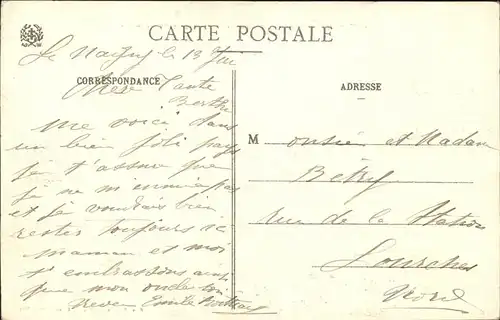 CARTE POSTALE
Le 13
CORRESPONDANCE
ADRESSE
Tante
Berthe
me voici dans
un bien joli pays
je t'assure que
je ne m'ennuie pas
et je voudrais bien
rester toujours ici
maman et moi
t'embrassons ainsi
que mon oncle ton
neveu Emile
Monsieur et Madame
rue de la Station
Lourches
Nord